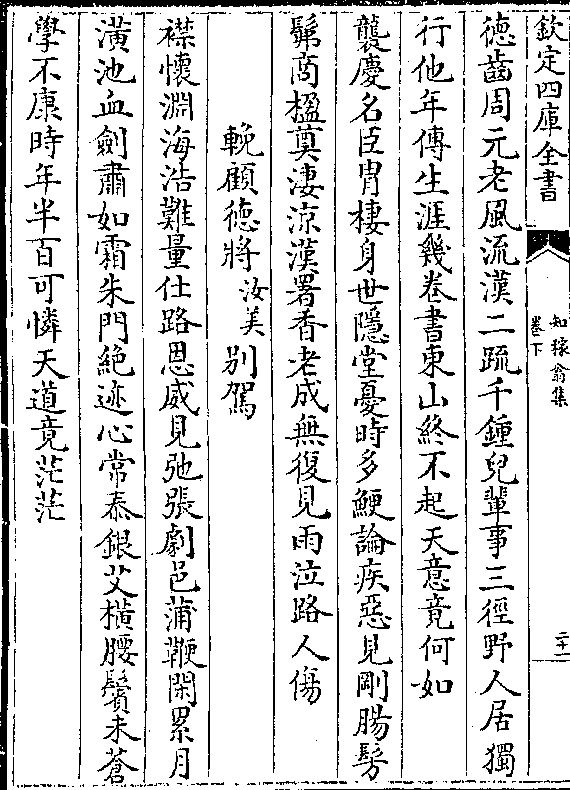 欽定四庫全書
知稼翁集
卷下
二十一
德齒周元老風流漢二䟽千鍾兒輩事三徑野人居獨
行他年傳生涯幾卷書東山終不起天意竟何如
襲慶名臣胄棲身世隱堂憂時多鯁論疾惡見剛腸髣
髴商楹奠淒涼漢署香老成無復見雨泣路人傷
輓顧德將汝美别駕
襟懷淵海浩難量仕路恩威見弛張劇邑蒲鞭閑累月
潢池血劍肅如霜朱門絶迹心常泰銀艾橫腰鬢未蒼
學不康時年半百可憐天道竟茫茫